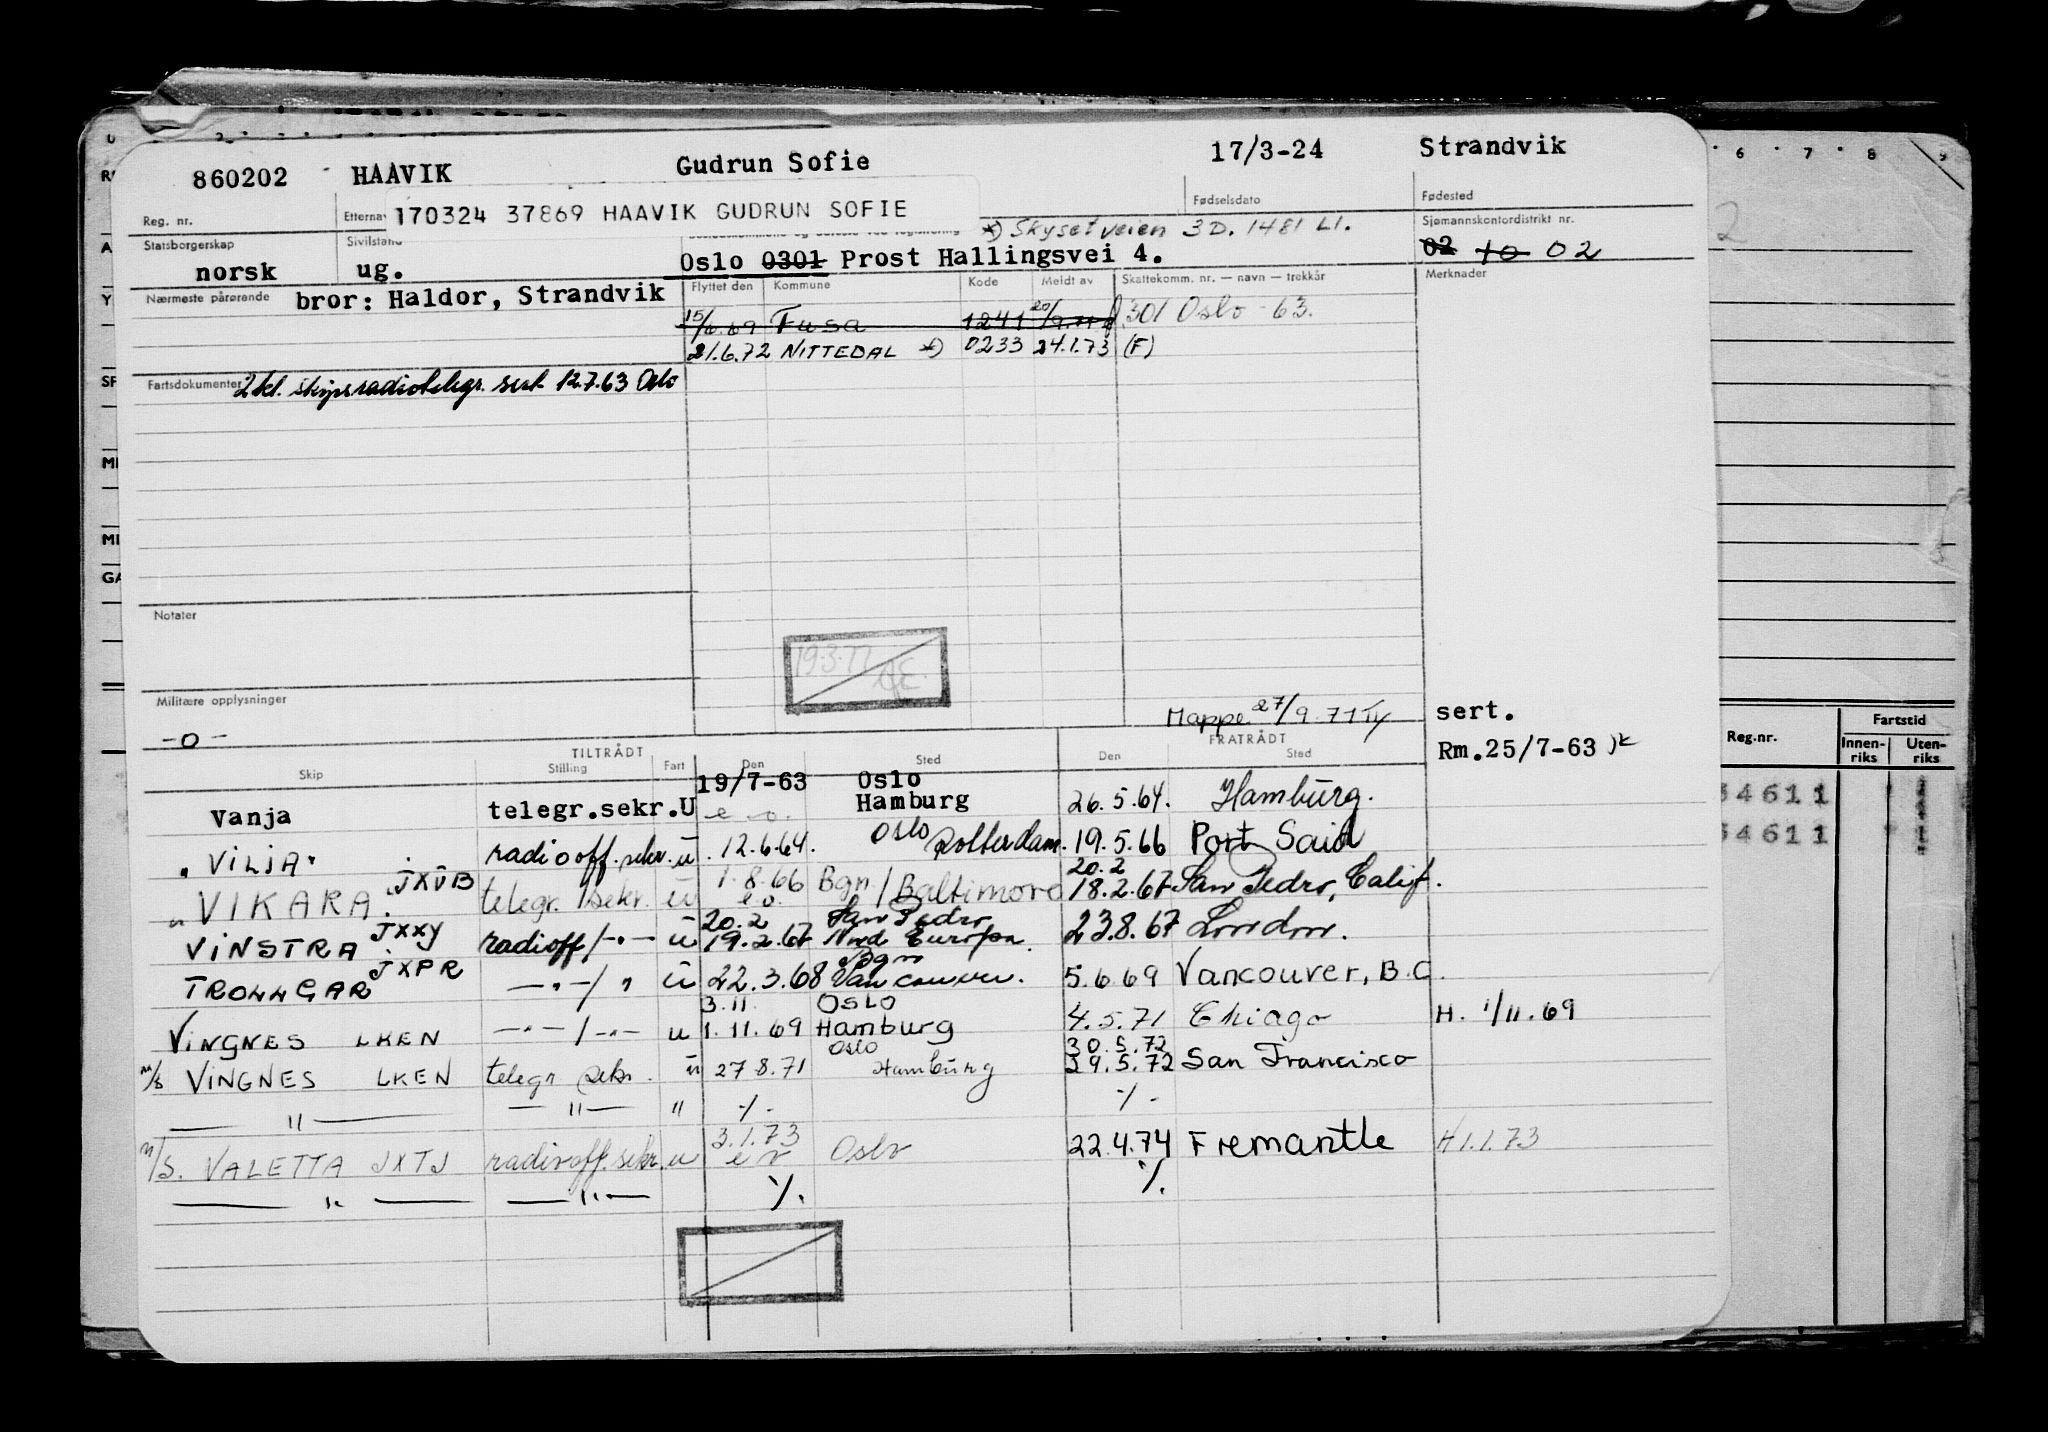 860202 HAAVIK Gudrun Sofie 17/3-24 Strandvik
Reg. nr. Fødselsdato Fødested
170324 37869 HAAVIK GUDRUN SOFIE
Statsborgerskap Sivilstand *) Skysetveien 3D. 1481 LI. Sjømannskontordistrikt nr.
norsk ug. Oslo 0301 Prost Hallingsvei 4. 02 10 02
Nærmeste pårørende bror: Haldor, Strandvik Flyttet den Kommune Kode Meldt av Skattekomm. nr. — navn — trekkår Merknader
15/6.69 Fusa 1241 20/9.71 301 Oslo - 63.
21.6.72 NITTEDAL *) 0233 24.1.73 (F)
Fartsdokumenter 2 kl. skipsradiotelegr. sert 12.7.63 Oslo
Notater
19.3.77
Militære opplysninger
-o-
Mappe 27/9.71 sert.
Rm.25/7-63
TILTRÅDT FRATRÅDT
Skip Stilling Fart Den Sted Den Sted
19/7-63 Oslo
Vanja telegr.sekr.U e.o. Hamburg 26.5.64. Hamburg.
"VILJA" radiooff.sekr. u 12.6.64. Oslo Rotterdam. 19.5.66 Port Said
VIKARA. JXUB telegr./sekr. u 1.8.66 e.o. Bgn/Baltimore 20.2 18.2.67 San Pedro, Calif.
VINSTRA JXXY radioff/-"- u 20.2 19.2.67 San Pedro Nord Europa. 23.8.67 London.
TROLLGAR JXPR -"-/" u 22.3.68 Bgn Vancouver. 5.6.69 Vancouver, B.C.
3.11. OSLO
VINGNES LKEN -"-/-"- u 1.11.69 Hamburg 4.5.71 Chiago H. 1/11.69
Oslo 30.5.72
m/s VINGNES LKEN telegr sekr. u 27.8.71 Hamburg 29.5.72 San Francisco
— " — — " — " ./. ./.
3.1.73
m/s. VALETTA JXTJ radiooff.sekr. u e o Oslo 22.4.74 Fremantle H 1.1.73
— " — — " — ./. ./.
6 7 8 9
2
Reg.nr. Fartstid
Innenriks Utenriks
34611
34611